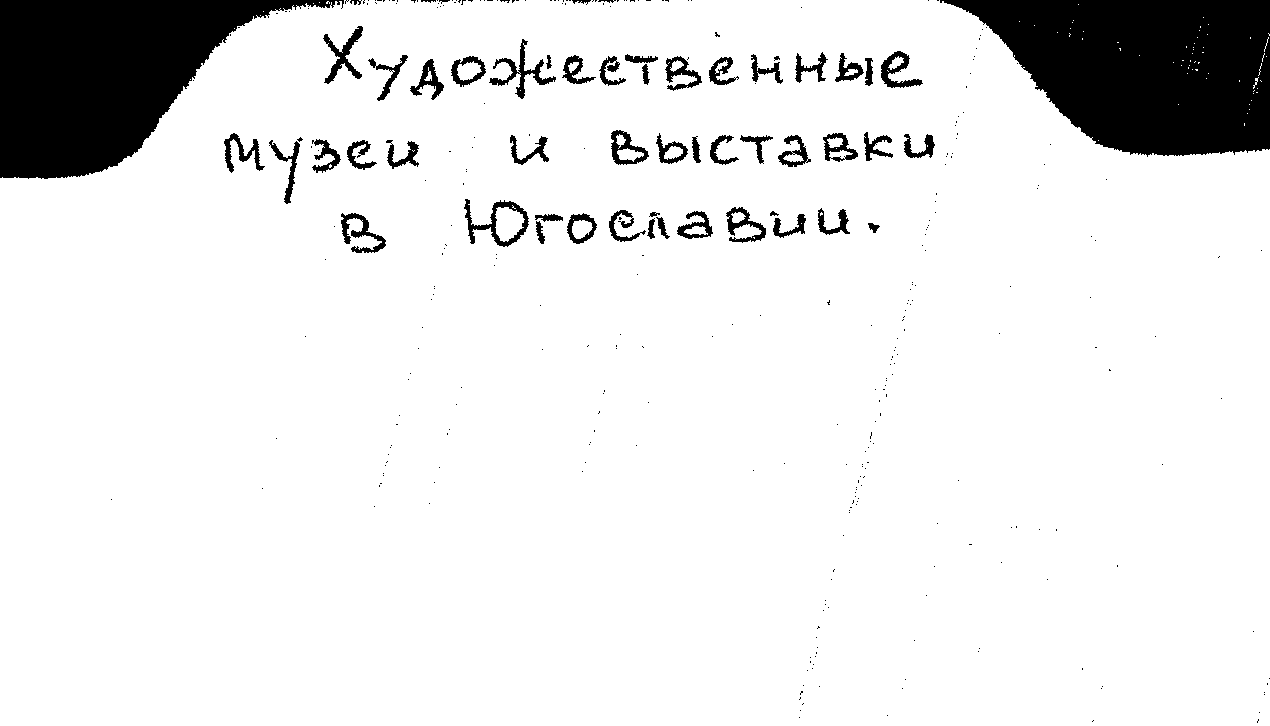 Художественные
музеи и выставки
в Югославии.